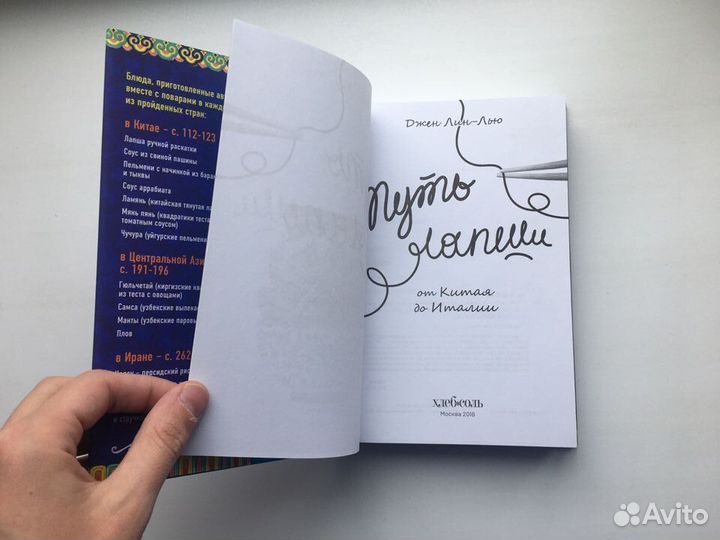 Блюда, приготовленные
вместе с поварами в
из пройденных стран:
в Китае – с. 112-123
Лапша ручной раскатки
Соус из свиной пашины
Пельмени с начинкой из
и тыквы
Соус аррабиата
Ламянь (китайская тянутая
Мянь пянь (квадратики теста
томатным соусом)
Чучура (уйгурские пельмени
в Центральной
с. 191-196
Гюльчетай (киргизские
из теста с овощами)
Самса (узбекские
Манты (узбекские
Плов
в Иране – с. 262
– персидский
и
Джен Лин-Лью
Путь
лапши
от Китая
до Италии
хлебсоль
Москва 2018
Avito